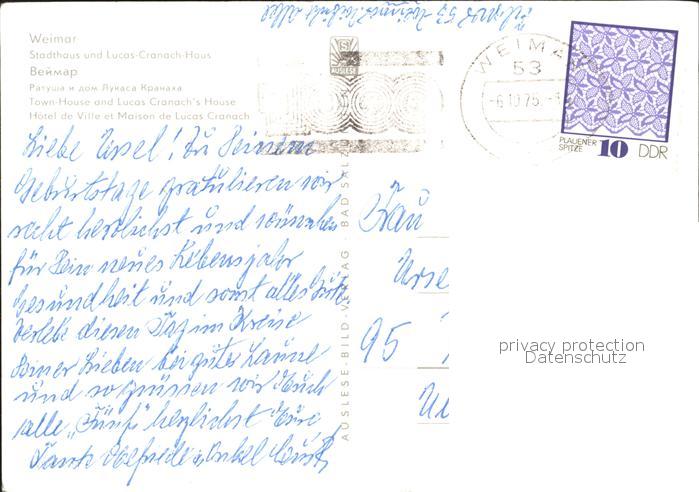 Weimar
Stadthaus und Lucas-Cranach-Haus
Веймар
Ратуша и дом Лукаса Кранаха
Town-House and Lucas Cranach's House
Hôtel de Ville et Maison de Lucas Cranach
AUSLESE
WEIMA
53
-6.10.75.-
PLAUENER
SPITZE 10 DDR
Liebe Ursel! Zu Deinem
Geburtstage gratulieren wir
recht herzlichst und wünschen
für Dein neues Lebensjahr
Gesundheit und sonst alles Gute.
Verlebe diesen Tag im Kreise
Deiner Lieben bei guter Laune
und so grüssen wir Euch
alle „Fünf" herzlichst Eure
Tante Elfriede u. Onkel
AUSLESE-BILD-VERLAG · BAD SALZ
Frau
Urse
95
privacy protection
Datenschutz